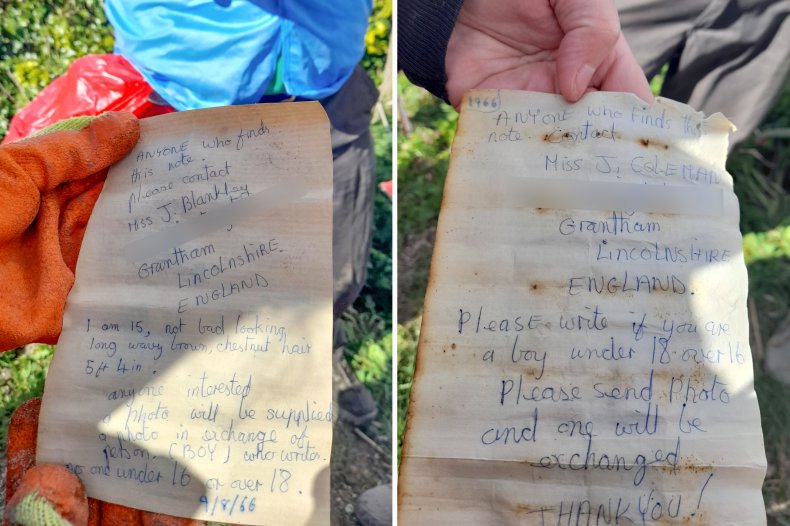 ANYONE who finds
this note.
please contact
Miss J. Blankley
Grantham
LINCOLNSHIRE.
ENGLAND
I am 15, not bad looking
long wavy brown, chestnut hair
5ft 4in.
anyone interested
a photo will be supplied
a photo in exchange of
person. (BOY) who writes.
no one under 16 or over 18.
9/8/66
1966
ANYONE who finds this
note. Contact
MISS J. COLEMAN
Grantham
LINCOLNSHIRE
ENGLAND.
Please write if you are
a boy under 18 over 16
Please send Photo
and one will be
exchanged
THANKYOU!